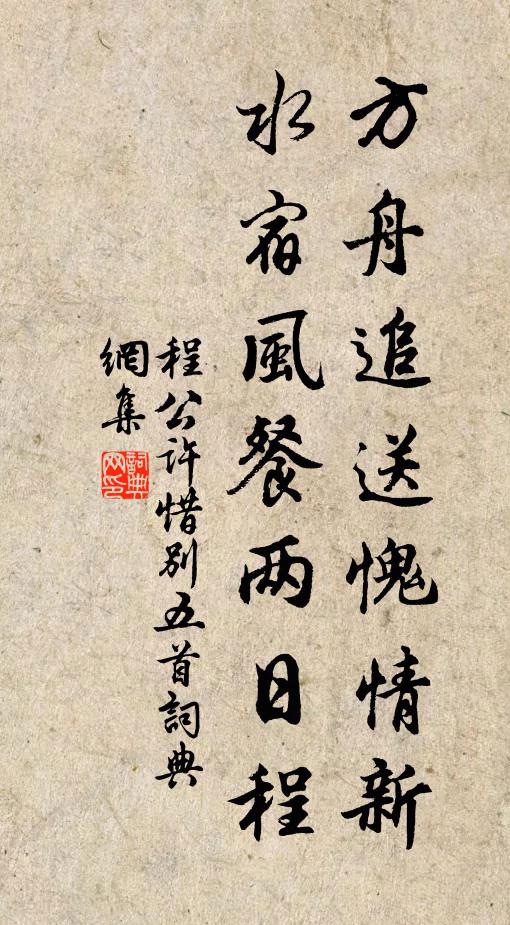 方舟追送愧情新
水宿風餐两日程
程公许惜别五首詞典
網集
詞典网印